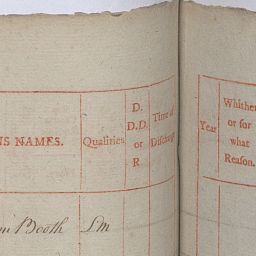 NS NAMES.
Qualities
D.
D.D.
or
R.
Time of
Discharge
Year
Whether
or for
what
Reason.
Booth Lm